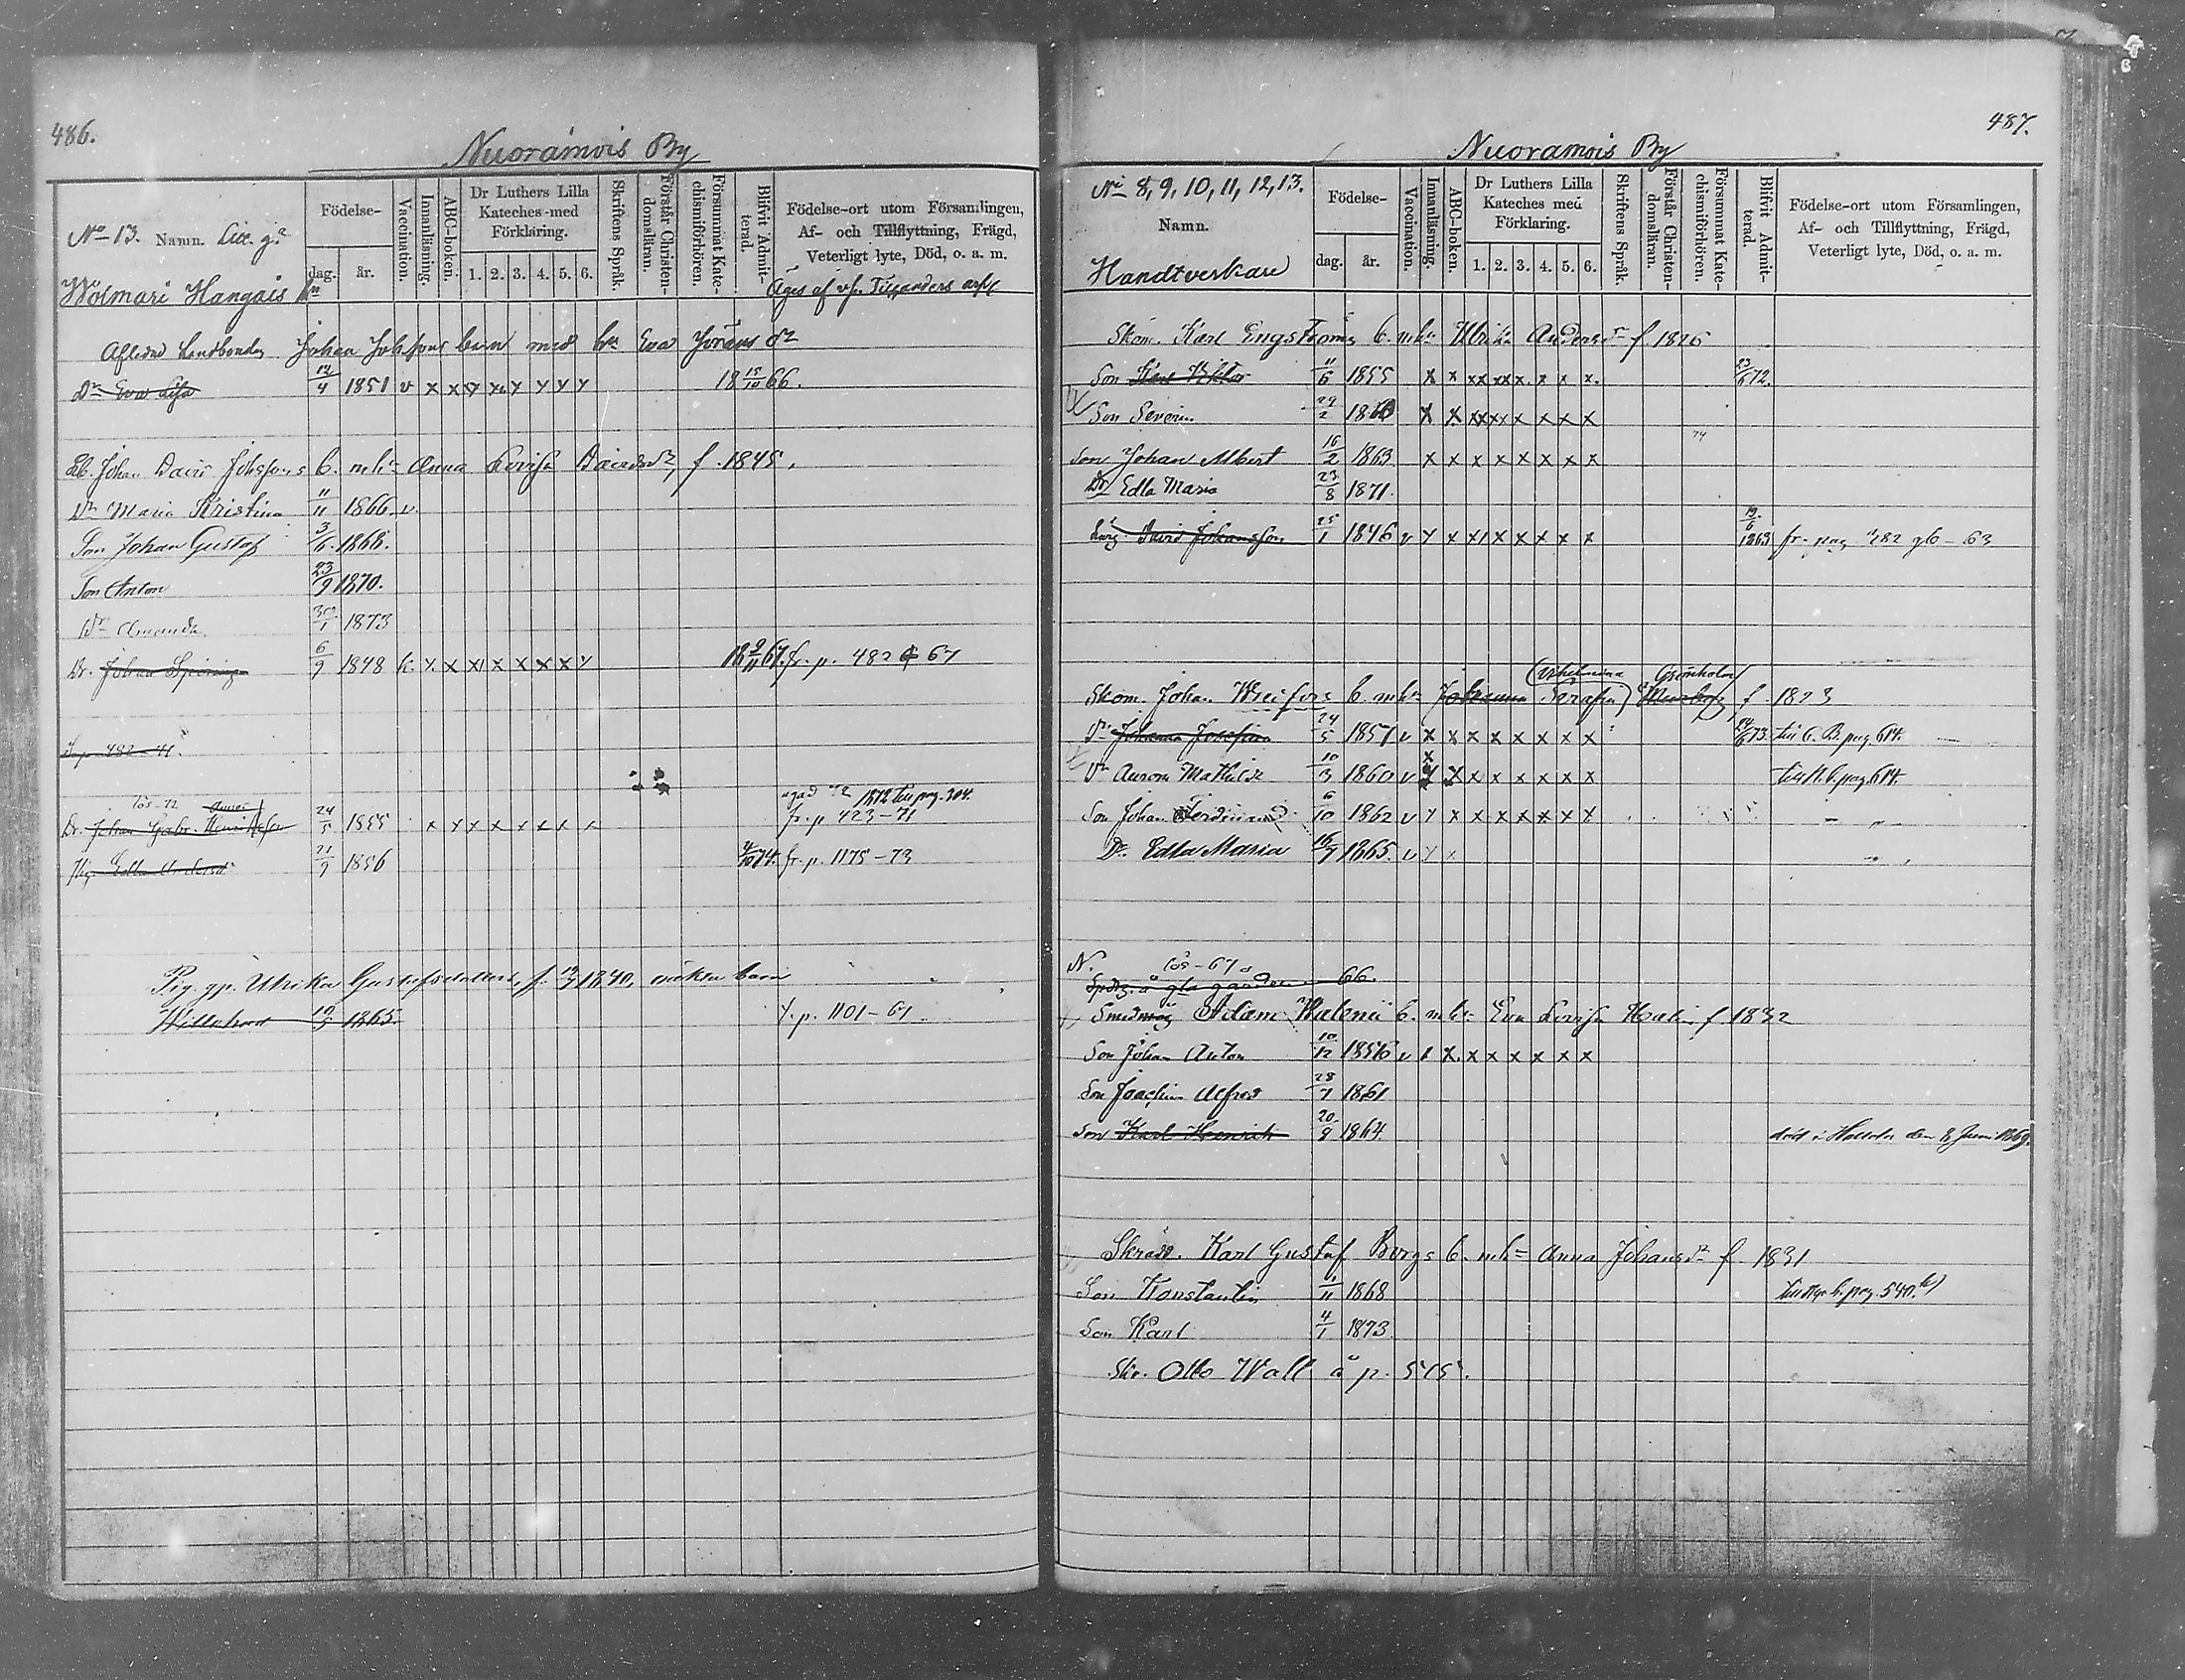 486.
Nuoramois By
No 13. Namn. Litt. g.
Födelse-
dag.
år.
Vaccination.
Innanläsning.
ABC-boken.
Dr Luthers Lilla
Kateches med
Förklaring.
1. 2. 3. 4. 5. 6.
Skriftens Språk.
Förstår Christen-
domsläran.
Försummat Kate-
chismiförhören.
Blifvit Admit-
terad.
Födelse-ort utom Församlingen,
Af- och Tillflyttning, Frägd,
Veterligt lyte, Död, o. a. m.
Wolmari Hangais
Äges af
Aflidne Landbonden Johan Johssons barn med hu Eva Jöransdr
Dr Eva Lisa 12/4 1851 v x x x x x x x x 18 15/10 66.
Lb. Johan David Johssons b. m. h. Anna Lovisa Davidsdr, f. 1845.
Dr Maria Kristina 11/11 1866 v.
Son Johan Gustaf 3/6 1868.
Son Anton 23/9 1870.
Dr Amanda 30/1 1873
Dr. Johan 6/9 1848 x x x x x x x x 18 9/11 67. fr. p. 482 67
482-71.
1872 till pag. 304.
Dr. Johan Gabr. 24/5 1855 x x x x x x x x fr. p. 423-71
Pig. Edla 21/9 1856 74. fr. p. 1175-73
Pig. Ulrika Gustafsdotters, f. 1840, oäkta barn
Willehard 1865. p. 1101-61
487.
Nuoramois By
No 8, 9, 10, 11, 12, 13.
Namn.
Handtverkare
Födelse-
dag.
år.
Vaccination.
Innanläsning.
ABC-boken.
Dr Luthers Lilla
Kateches med
Förklaring.
1. 2. 3. 4. 5. 6.
Skriftens Språk.
Förstår Christen-
domsläran.
Försummat Kate-
chismiförhören.
Blifvit Admit-
terad.
Födelse-ort utom Församlingen,
Af- och Tillflyttning, Frägd,
Veterligt lyte, Död, o. a. m.
Skom. Karl Engströms b. m. h. Ulrika Andersdr f. 1826
Son Karl Viktor 11/6 1855 x x xx xx x x x x. 23/6 72.
Son Severin 29/2 1860 x x xx xx x x x x
74
Son Johan Albert 16/2 1863 x x x x x x x x
Dr Edla Maria 23/8 1871.
Lärg. David Johansson 25/1 1846 v x x x x x x x x 19/6 1863 fr. pag 482 g 6-63
(Vilhelmina Grönholm)
Skom. Johan b. m. h. Johanna Serafia f. 1823
Dr Johanna Josefina 24/5 1857 v x x x x x x x x 73. till C. B. pag. 614.
Dr Aurora Mathilda 10/3 1860 v x x x x x x x x till pag. 614.
Son Johan Ferdinand 6/10 1862 v x x x x x x x x - " -
Dr Edla Maria 1865. v x x - " -
N.
lös-67
66.
Smedmäst Adam Walenii b. m. h. Eva Lovisa Malin f. 1832
Son Johan Anton 10/12 1856 v x x x x x x x x
Son Joachim Alfred 28/7 1861
Son Karl Henrik 20/9 1864 död i Hollola den 8 Juni 1869.
Skrädd. Karl Gustaf Borgs b. m. h. Anna Johansdr f. 1831
Son Konstantin 1/11 1868 till Nya b. pag. 540.
Son Karl 4/1 1873
Skr. Otto Wall å p. 515.